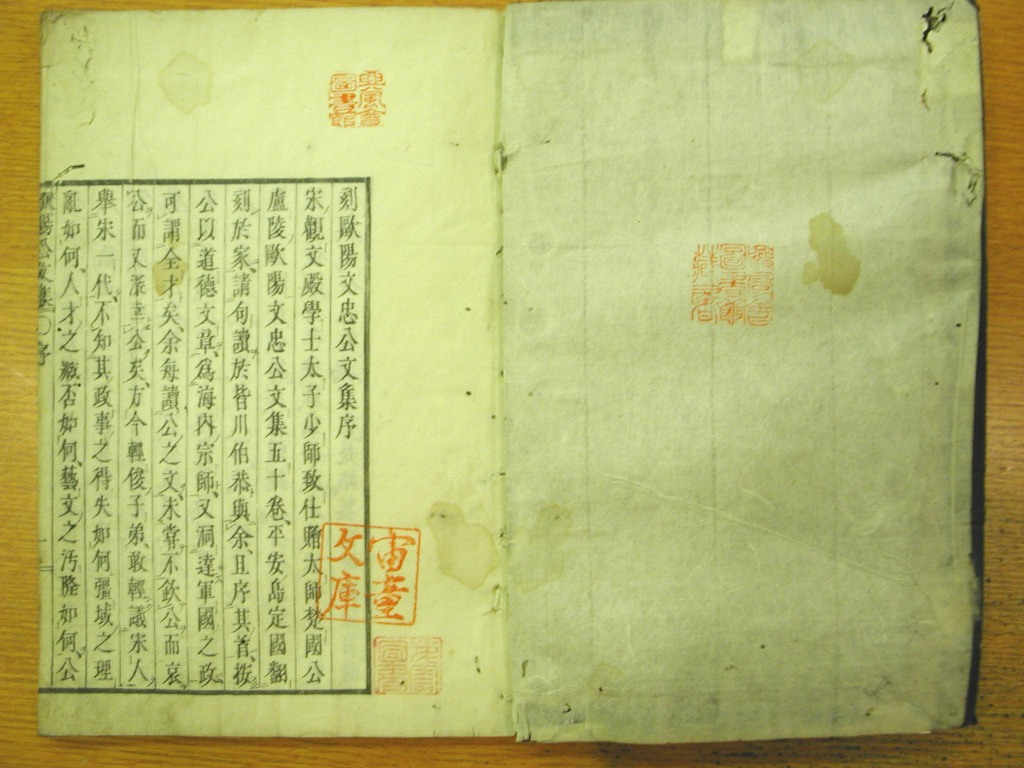 刻歐陽文忠公文集序
宋觀文殿學士太子少師致仕贈太師楚國公
廬陵歐陽文忠公文集五十卷、平安島定國翻
刻於家、請句讀於皆川伯恭與余、且序其首、按
公以道德文章、爲海內宗師、又洞達軍國之政
可謂全才矣、余每讀公之文、未嘗不欽公而哀
公而又深幸公矣、方今輕俊子弟、敢輕議宋人
舉宋一代、不知其政事之得失如何疆域之理
亂如何、人才之臧否如何、藝文之汚隆如何、公
歐陽公文集 序
興風會
圖書館
宙童
文庫